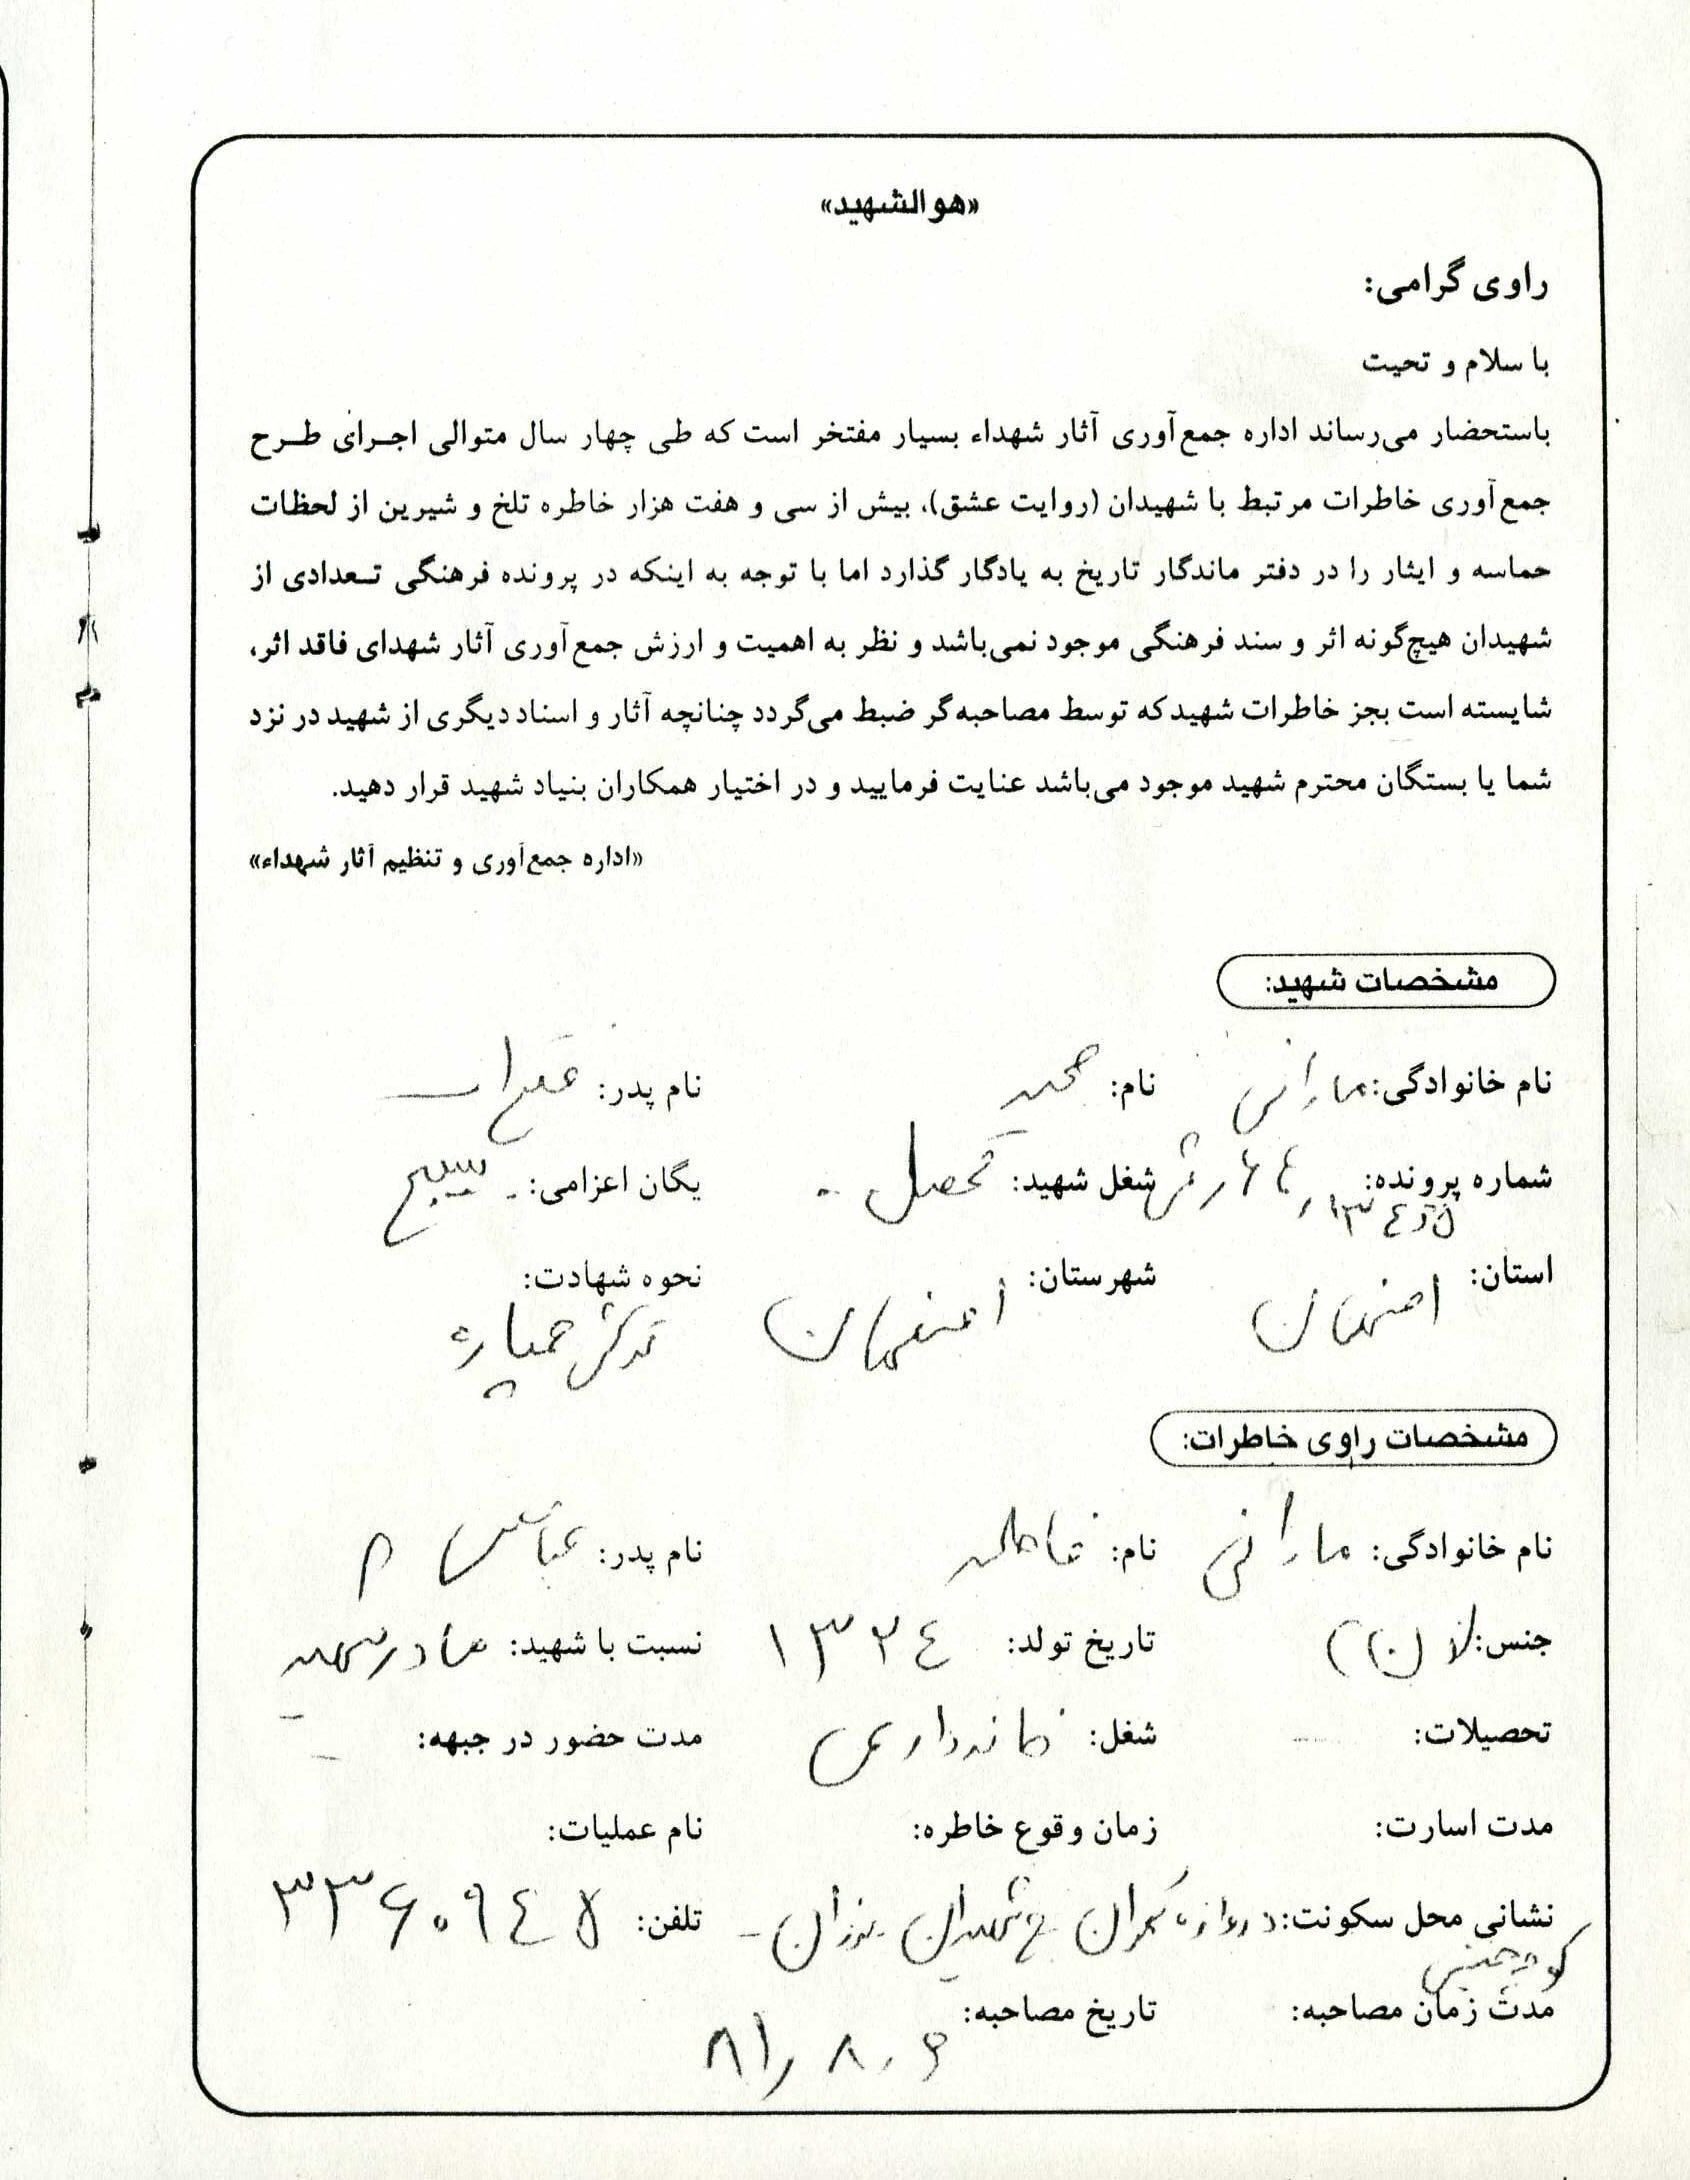 «هوالشهید»
راوی گرامی:
با سلام و تحیت
باستحضار می‌رساند اداره جمع‌آوری آثار شهداء بسیار مفتخر است که طی چهار سال متوالی اجرای طرح
جمع‌آوری خاطرات مرتبط با شهیدان (روایت عشق)، بیش از سی و هفت هزار خاطره تلخ و شیرین از لحظات
حماسه و ایثار را در دفتر ماندگار تاریخ به یادگار گذارد اما با توجه به اینکه در پرونده فرهنگی تعدادی از
شهیدان هیچ‌گونه اثر و سند فرهنگی موجود نمی‌باشد و نظر به اهمیت و ارزش جمع‌آوری آثار شهدای فاقد اثر،
شایسته است بجز خاطرات شهید که توسط مصاحبه‌گر ضبط می‌گردد چنانچه آثار و اسناد دیگری از شهید در نزد
شما یا بستگان محترم شهید موجود می‌باشد عنایت فرمایید و در اختیار همکاران بنیاد شهید قرار دهید.
«اداره جمع‌آوری و تنظیم آثار شهداء»
مشخصات شهید:
نام خانوادگی: مارانی نام: مجید نام پدر:
شماره پرونده: شغل شهید: محصل یگان اعزامی: بسیج
استان: اصفهان شهرستان: اصفهان نحوه شهادت: ترکش خمپاره
مشخصات راوی خاطرات:
نام خانوادگی: مارانی نام: فاطمه نام پدر: عباس
جنس: زن تاریخ تولد: ۱۳۲۴ نسبت با شهید: مادر شهید
تحصیلات: شغل: خانه‌داری مدت حضور در جبهه:
مدت اسارت: زمان وقوع خاطره: نام عملیات:
نشانی محل سکونت: دروازه تهران خ شهیدان تلفن: ۳۳۶۰۹۴۵
مدت زمان مصاحبه: تاریخ مصاحبه: ۸۱٫۸٫۶